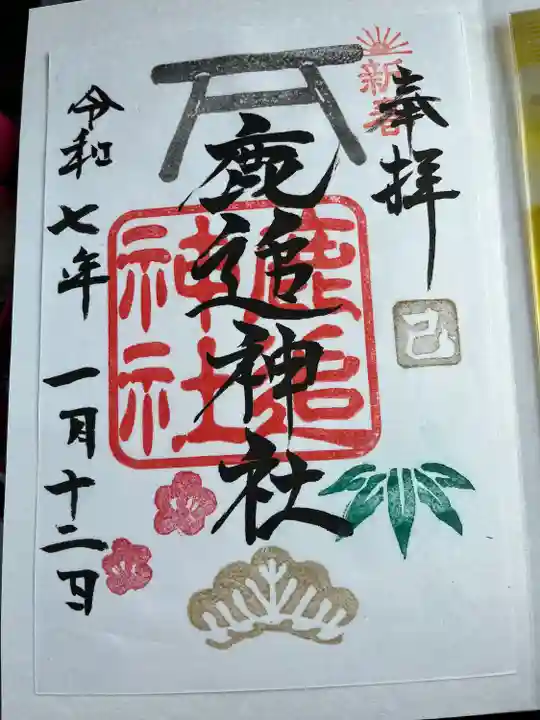 奉拝
新春
巳
鹿追神社
鹿追
神社
令和七年 一月十二日